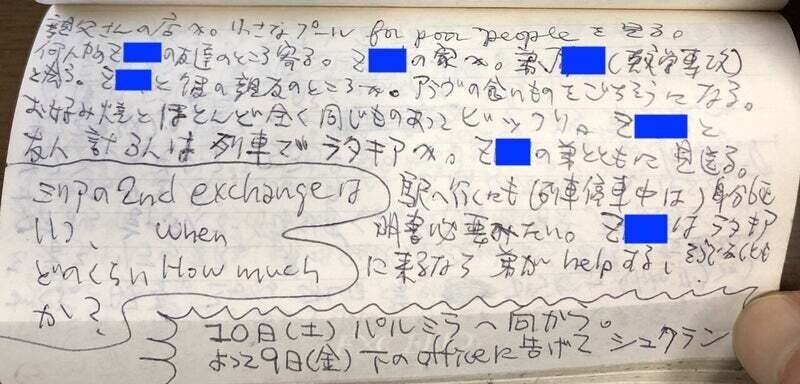 親父さんの店へ。小さなプール for poor people を見る。
何人かモ の友達のところ寄る。モ の家へ。弟、 (数学専攻)
と会う。モ と彼の親友のところへ。アラブの食いものをごちそうになる。
お好み焼とほとんど全く同じものあってビックリ。モ と
友人 計 人は列車でラタキアへ。モ の弟とともに見送る。
シリアの2nd exchangeは
いつ、 when
どのくらい How much
か?
駅へ行くにも(列車停車中は)身分証
明書必要みたい。モ はラタキア
に来るなら弟がhelpする、
10日(土) パルミラへ向かう。
よって9日(金) 下のofficeに告げて シュクラン